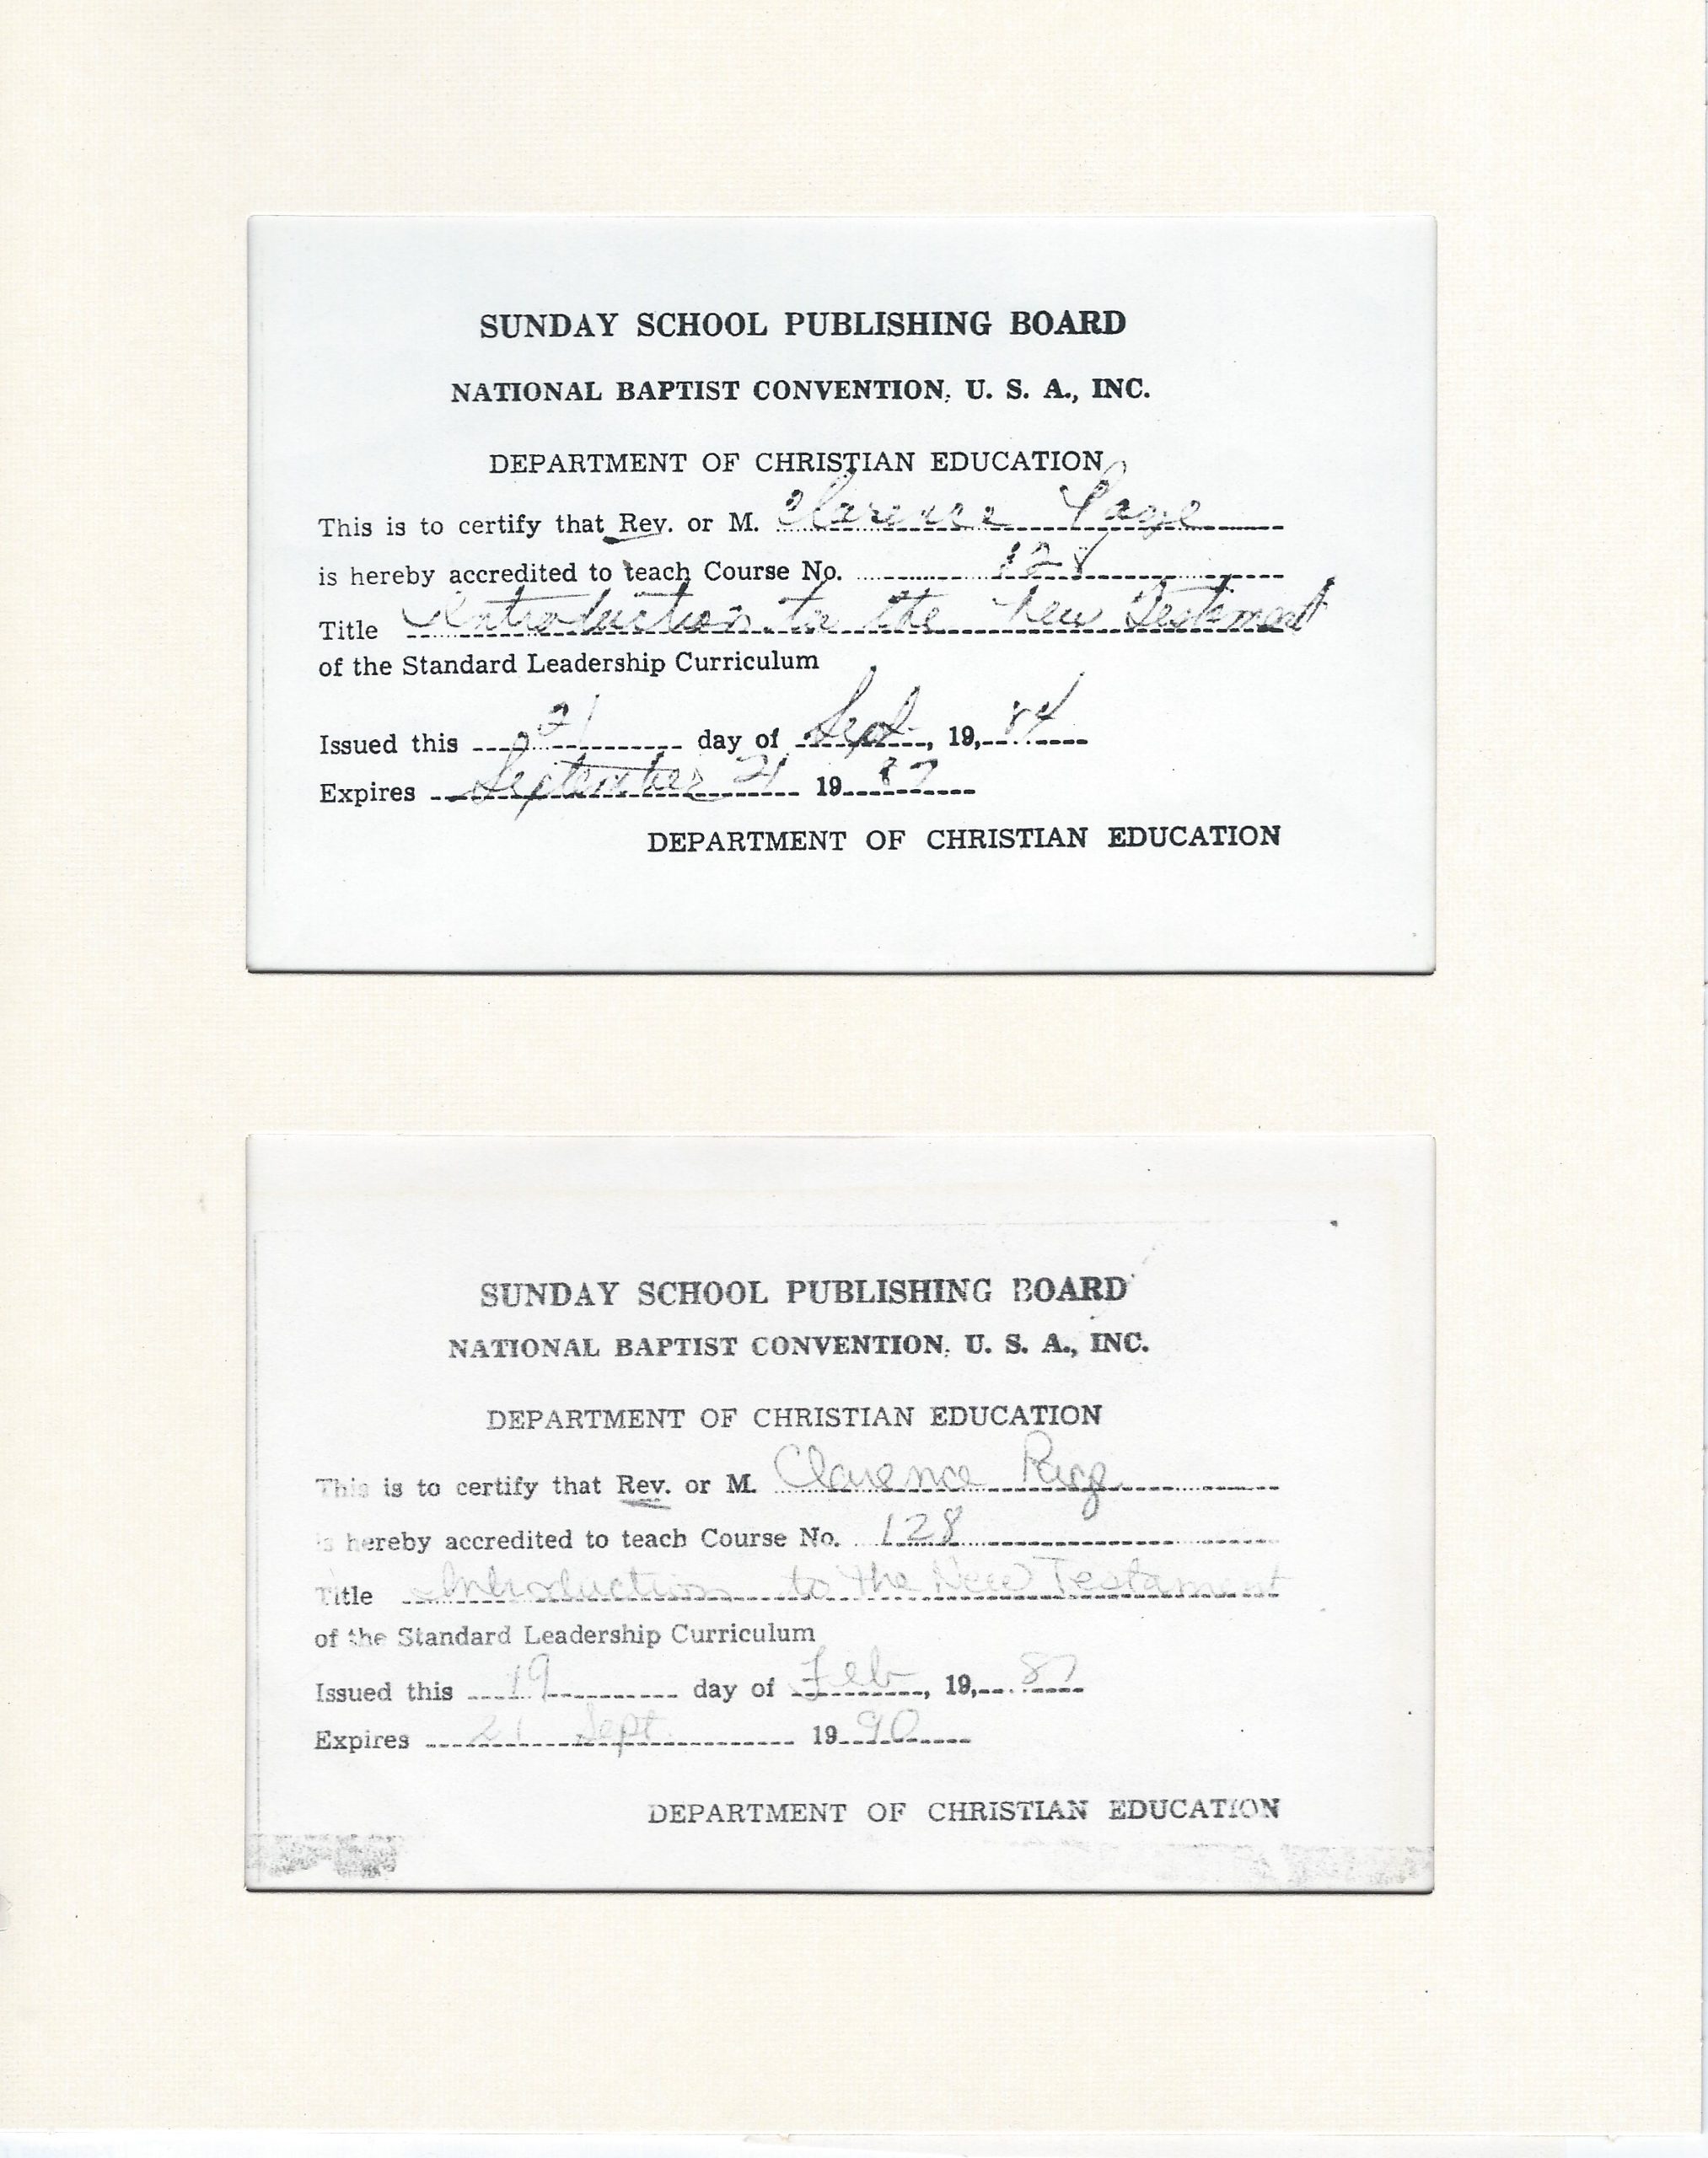 SUNDAY SCHOOL PUBLISHING BOARD
NATIONAL BAPTIST CONVENTION, U. S. A., INC.
DEPARTMENT OF CHRISTIAN EDUCATION
This is to certify that Rev. or M. Clarence Page
is hereby accredited to teach Course No. 128
Title Introduction to the New Testament
of the Standard Leadership Curriculum
Issued this 21 day of Sept., 19, 84
Expires September 21 19 87
DEPARTMENT OF CHRISTIAN EDUCATION
SUNDAY SCHOOL PUBLISHING BOARD
NATIONAL BAPTIST CONVENTION, U. S. A., INC.
DEPARTMENT OF CHRISTIAN EDUCATION
This is to certify that Rev. or M. Clarence Page
is hereby accredited to teach Course No. 128
Title Introduction to the New Testament
of the Standard Leadership Curriculum
Issued this 19 day of Feb, 19, 87
Expires 21 Sept. 19 90
DEPARTMENT OF CHRISTIAN EDUCATION